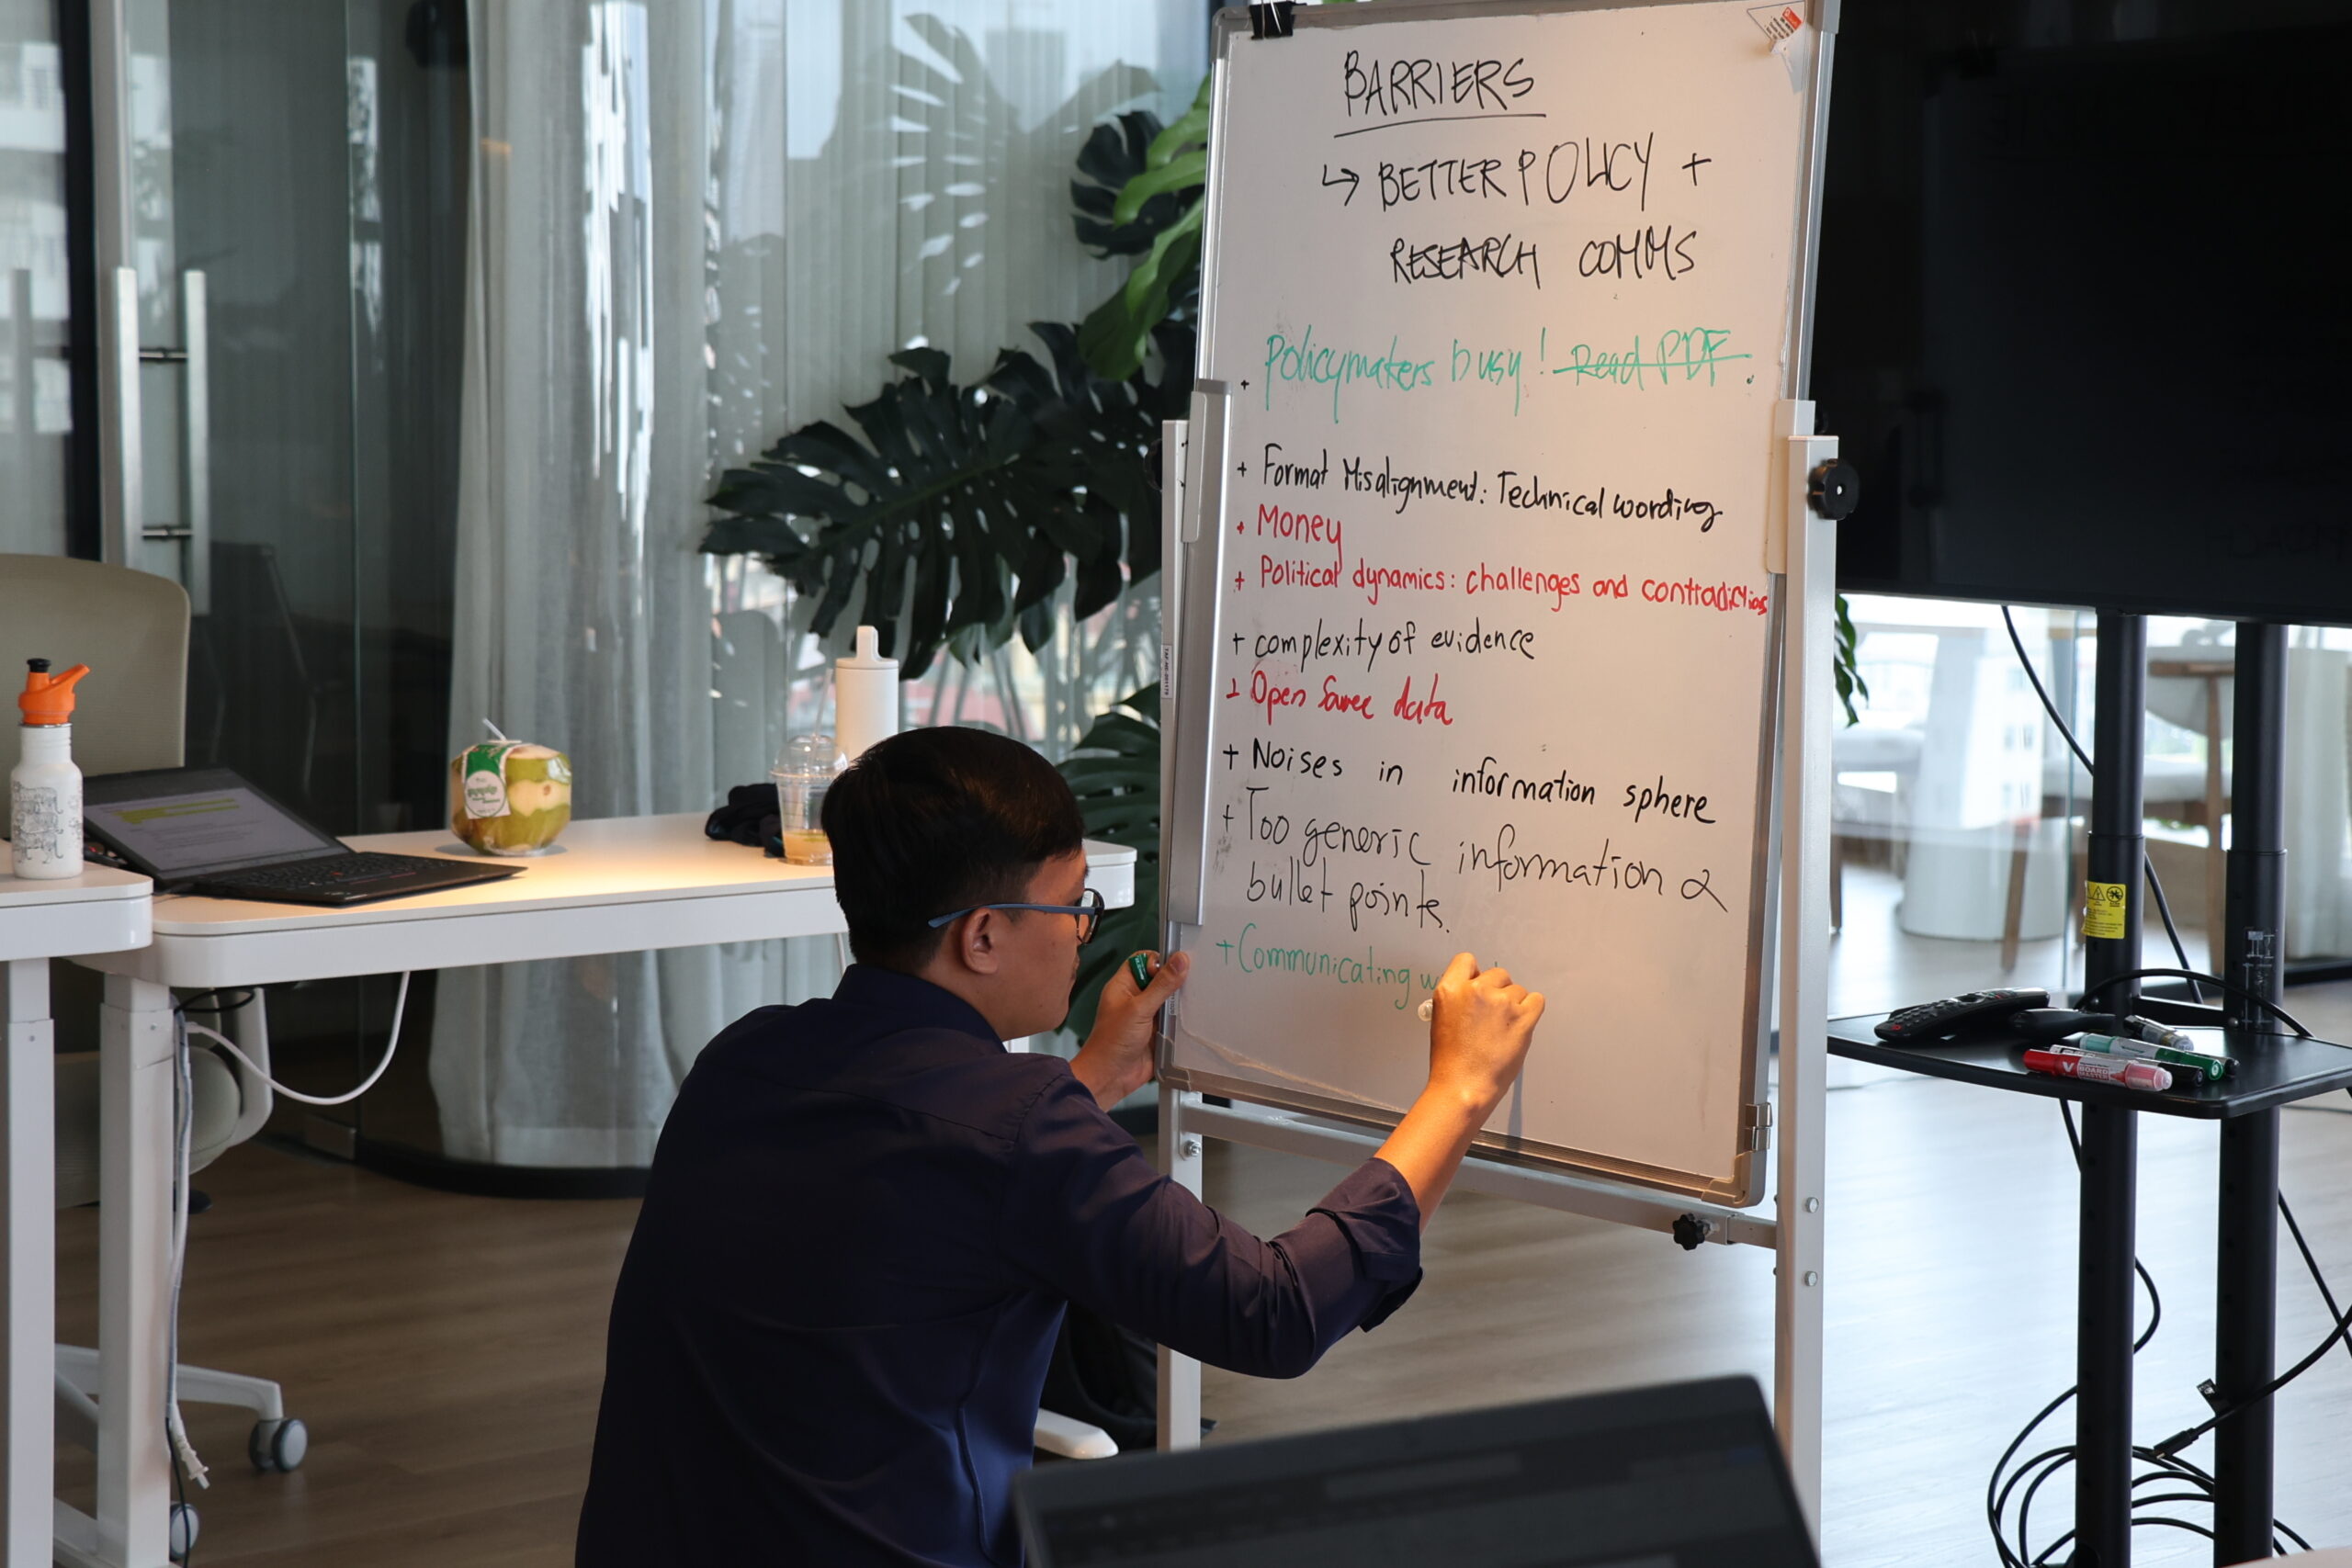 BARRIERS
↳ BETTER POLICY +
RESEARCH COMMS
• Policymakers busy! ~~Read PDF~~.
+ Format Misalignment: Technical wording
+ Money
+ Political dynamics: challenges and contradictions
+ complexity of evidence
+ Open Source data
+ Noises in information sphere
+ Too generic information &
bullet points.
+ Communicating
V BOARD MASTER